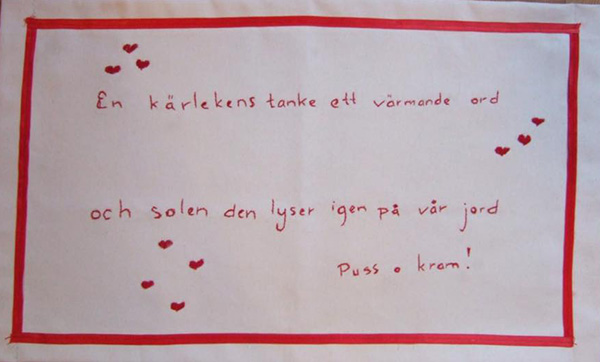 En kärlekens tanke ett värmande ord
och solen den lyser igen på vår jord
Puss o kram!